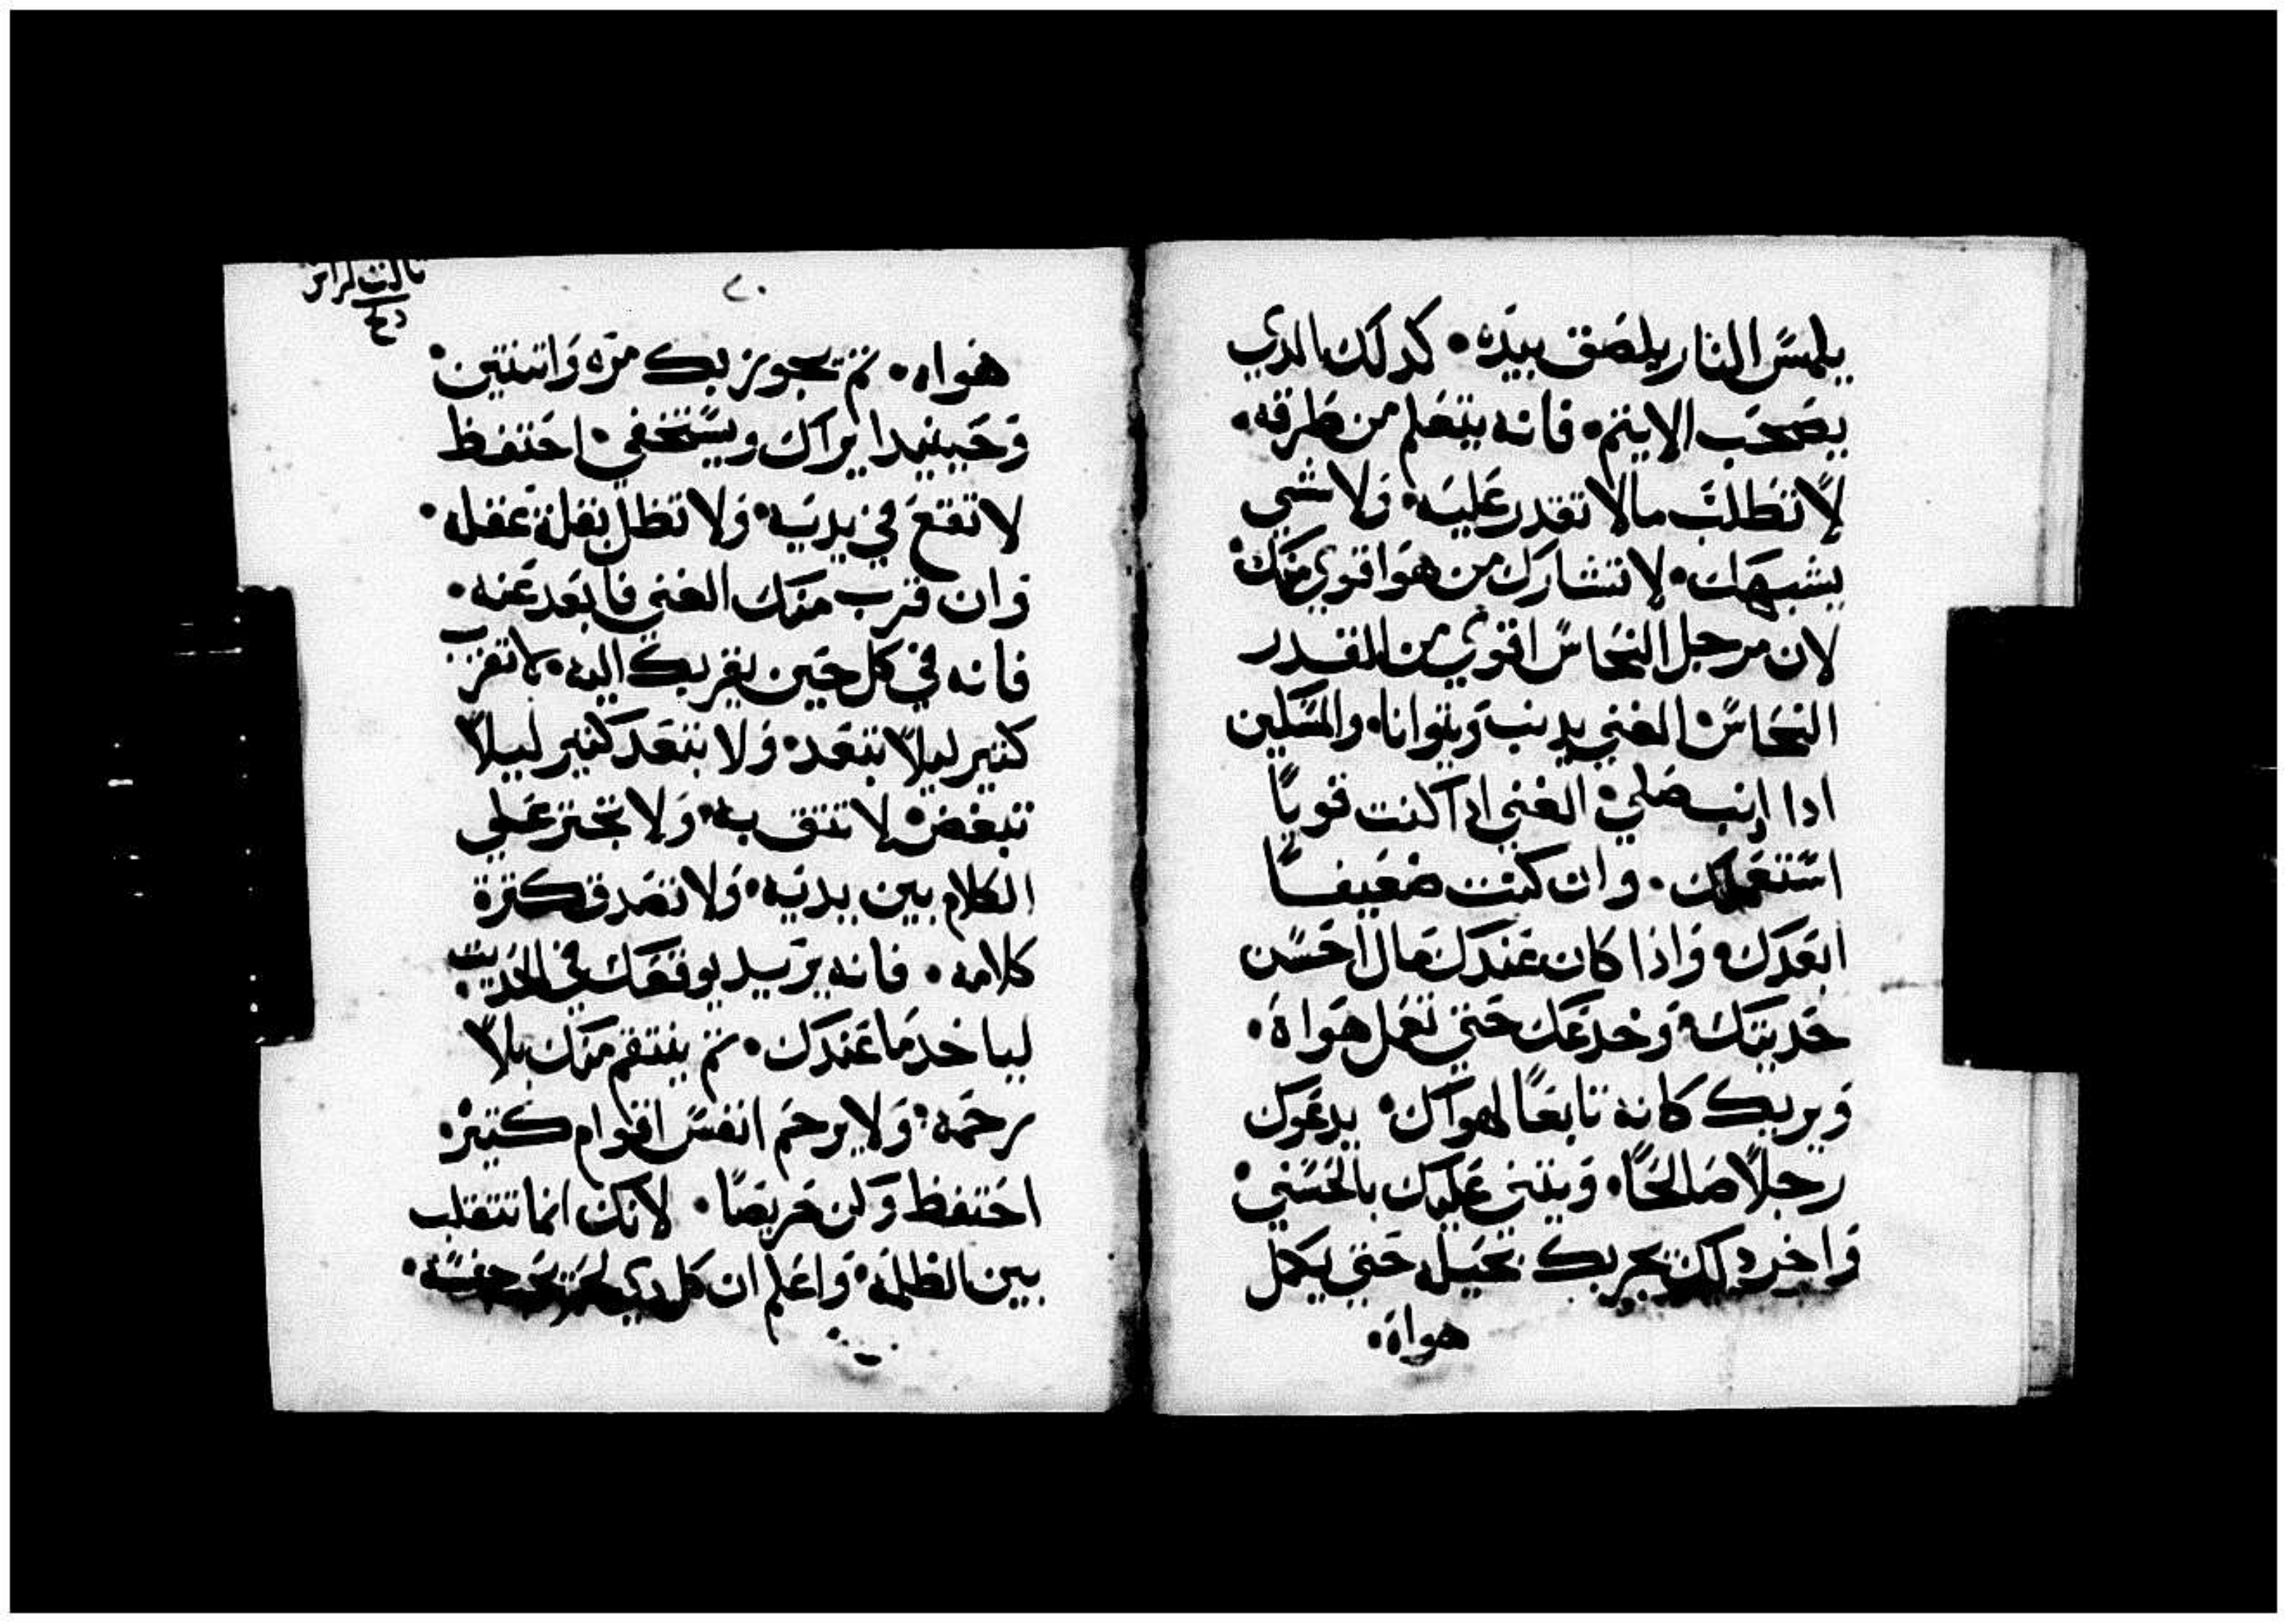 يلمسَّ النار يلصَق بيدَه • كدلك الدي
يصَحَب الاثيم • فانه يتعَلم من طَرقه •
لا تَطَلبَ مالا تقدر عَليَه • وَلا شي
يشبهَك • لا تتشارك من هوَ اقوي منَك •
لان مرجل النحَاسَ اقوي من القدر
النحَاسَ • الغني يدنب وَيتوانا • والمسَكين
ادا ادنب صَلي • الغني اذا كنت قوياً
اسَتعَملك • وان كنت ضعَيفاً
ابعَدَك • وَاذا كان عَندَك مَال احَسَن
حَديتك • وَخدعَك حَتي تعَمل هَواهَ •
وَيريك كانه تابعَاً لهواك • يدعَوك
رجلاً صَالحَاً • وَيتني عَليك بالحَسَني •
وَاخر دلك يجربك بحَيله حَتي يكَمل
هواهَ •
٢٠
تالت كراس
هَواه • تم يجوز بك مرَه وَاتنتين •
وَحَينيدا يراك ويسَتخفي • احَتفظ
لا تقعَ في يديَه • وَلا تظل بقلة عَقله •
وَان قرب منَك الغني فابعَد عَنه •
فانه في كل حَين يقربك اليه • لا تقرَب
كتير ليلاَّ تبتعَد • وَلا تبتعَد كتير ليلاَّ
تبغض • لا تتق به • وَلا تجتز عَلي
الكلام بين يديَه • وَلا تصَدق كترة
كلامه • فانه يرَيد يوقعَك في الحَديت •
لياخد مَا عَندَك • تم ينتقم منَك بلاَّ
رحَمه • وَلا يرحَم انفسَ اقوام كتيره •
احَتفظ وَكن حَريصَاً • لانَك انما تتقلب
بين الظلمَه • وَاعَلم ان كل دي يحَب جنسَه •